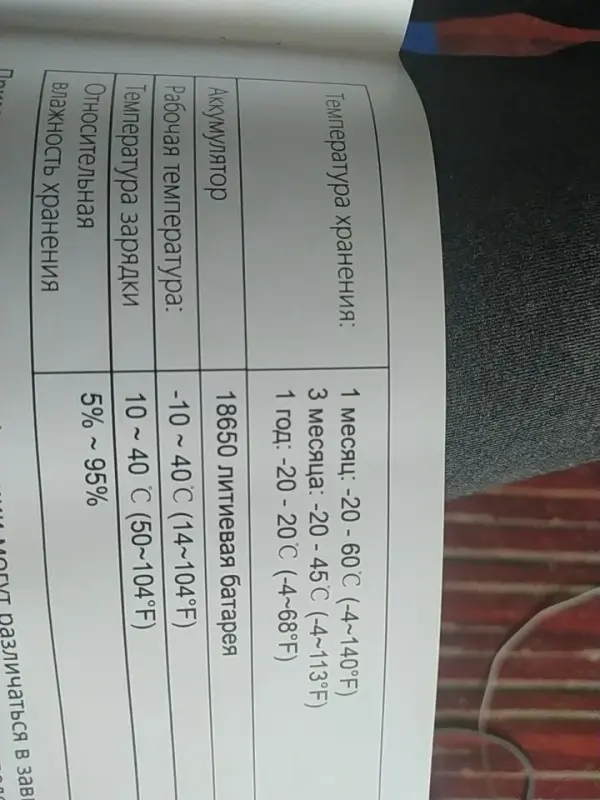 Температура хранения:
1 месяц: -20 - 60℃ (-4~140°F)
3 месяца: -20 - 45℃ (-4~113°F)
1 год: -20 - 20℃ (-4~68°F)
Аккумулятор
18650 литиевая батарея
Рабочая температура:
-10 ~ 40℃ (14~104°F)
Температура зарядки
10 ~ 40 ℃ (50~104°F)
Относительная
влажность хранения
5% ~ 95%
могут различаться в